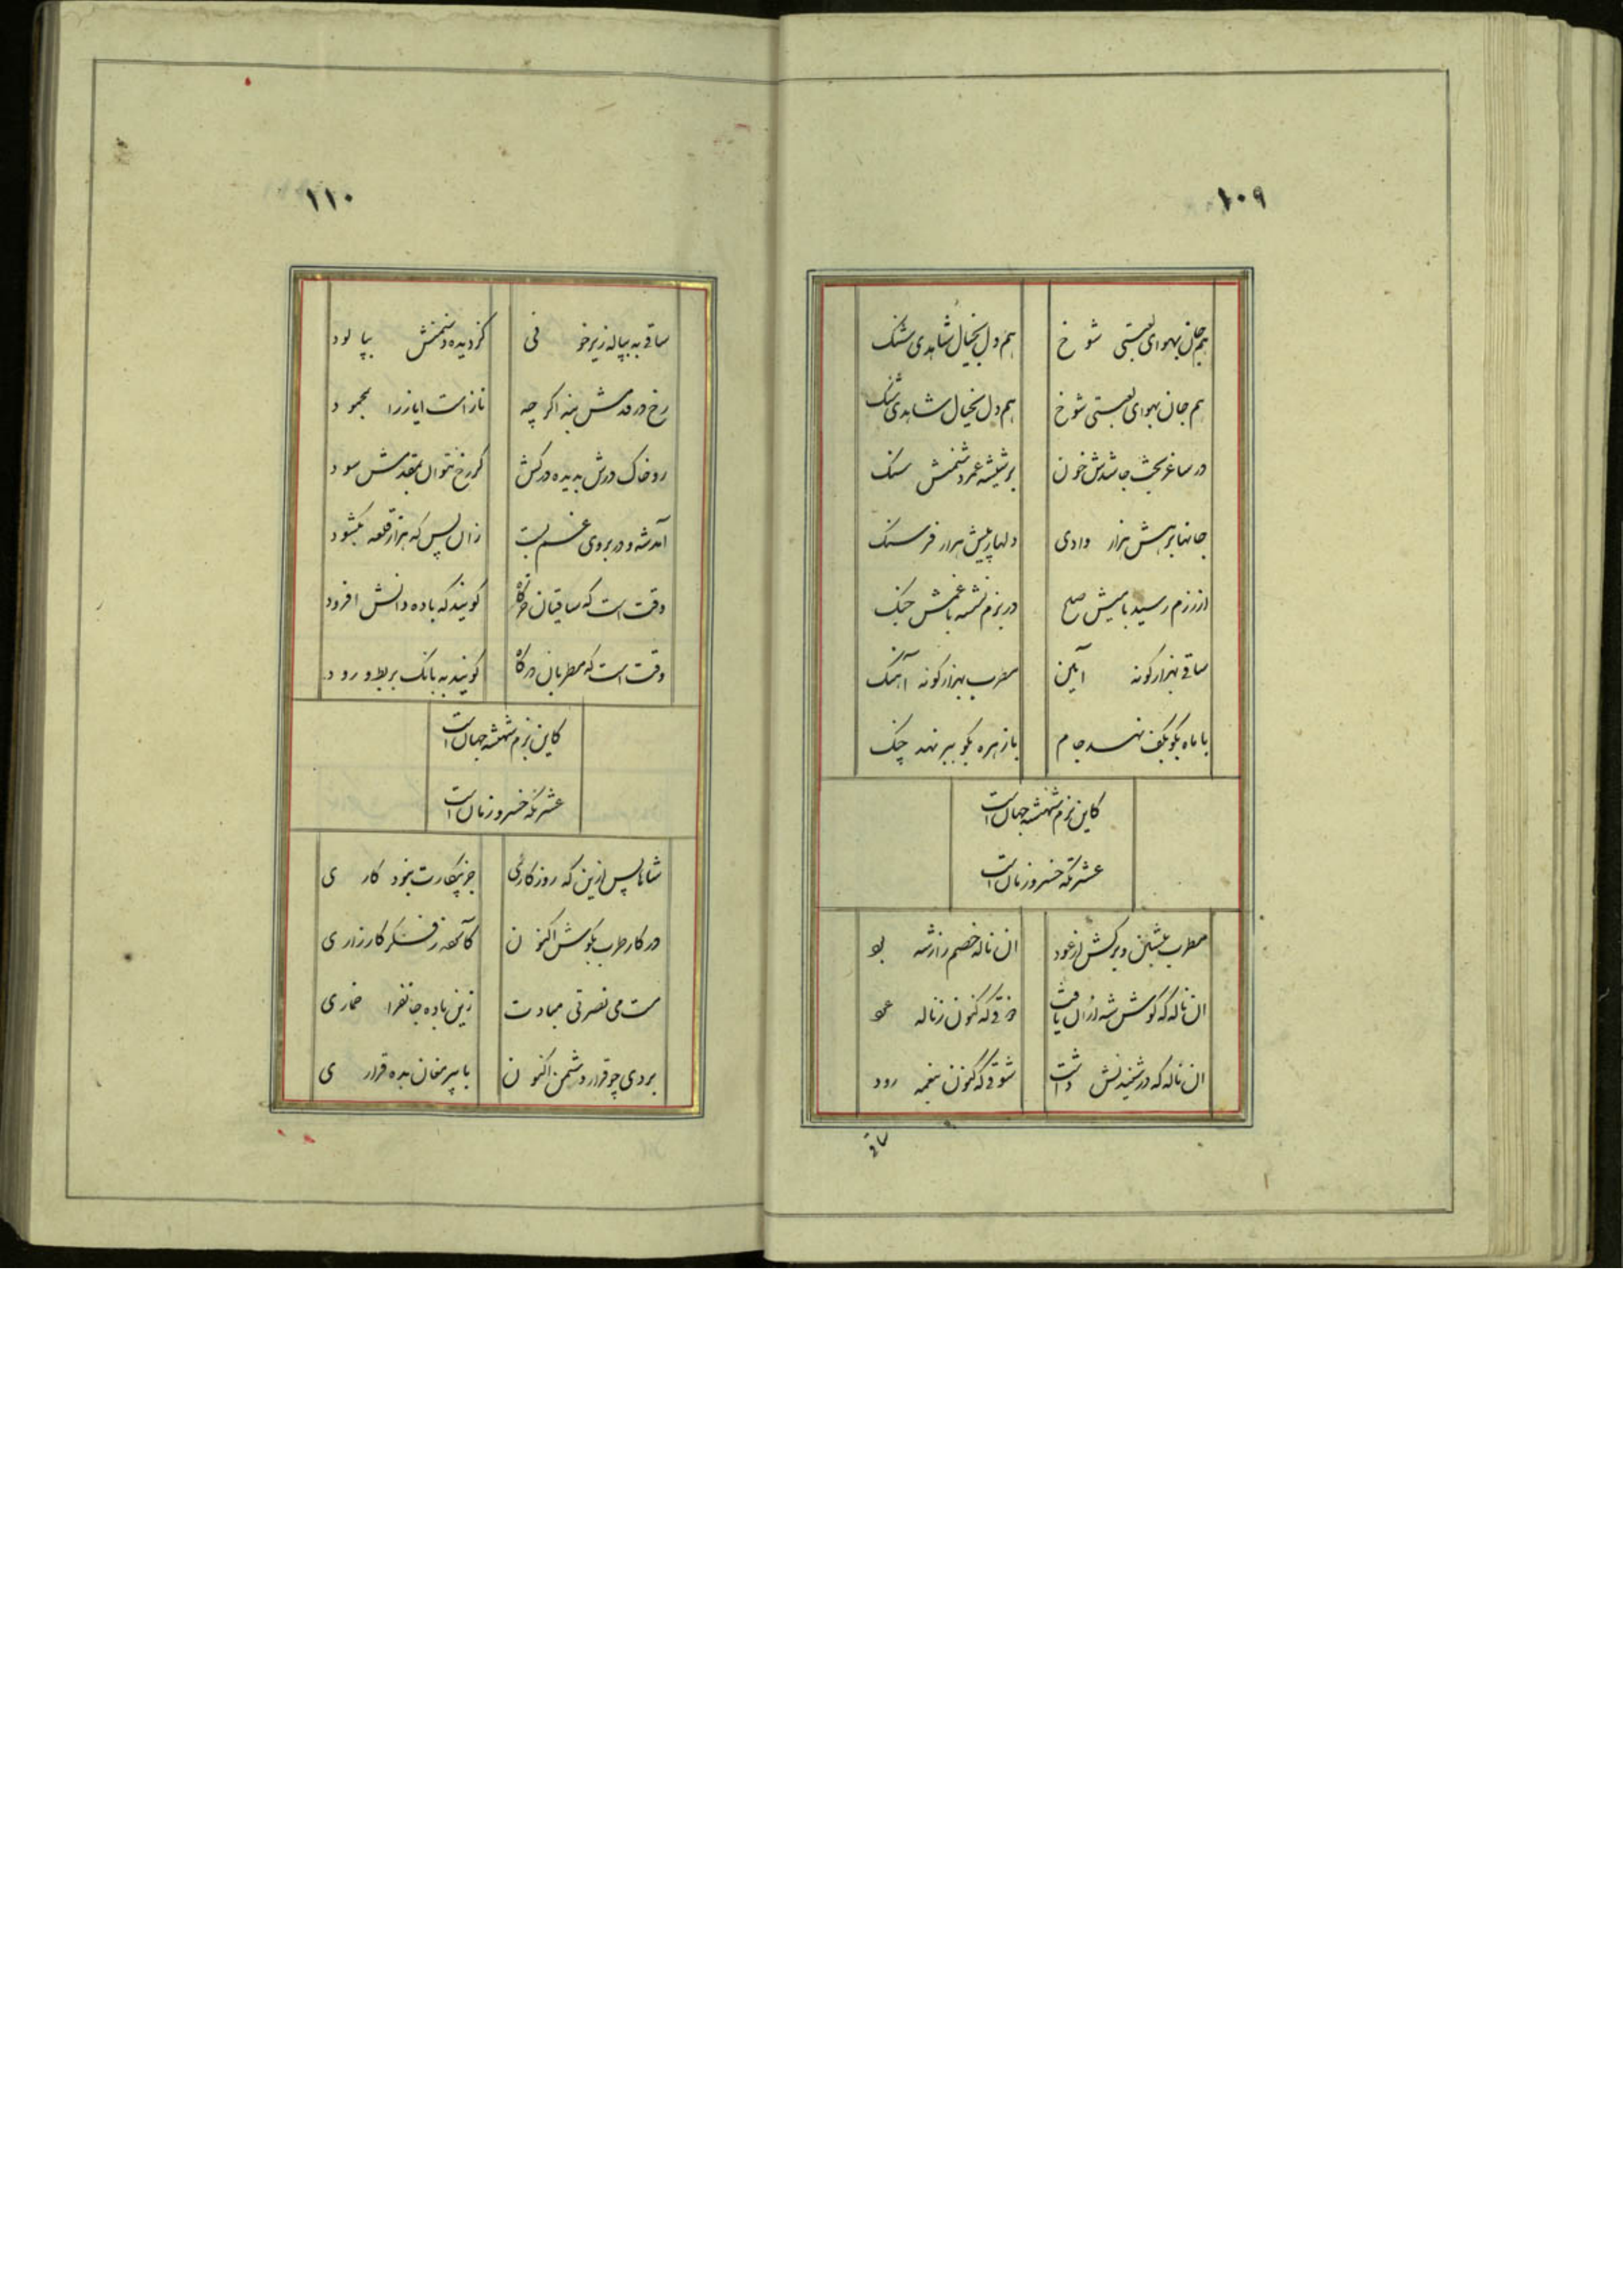 ۱۰۹
هم جان بهوای لعبتی شوخ هم دل بخیال شاهدی شنک
هم جان بهوای لعبتی شوخ هم دل بخیال شاهدی شنک
در ساغر بخت شدش خون بر شیشه عمر دشمنش سنک
جانها برهش هزار وادی دلها ز پیش هزار فرسنک
از رزم رسید با میش صلح در بزم نشسته با غمش جنک
ساقی بهزار کونه آئین مطرب بهزار کونه آهنک
با ماه بکو بکف نهد جام با زهره بکو ببر نهد چنک
کاین بزم شهنشه جهان است
عشرتکه خسرو زمان است
مطرب بنشین و برکش از عود ان ناله خصم را ز شه بود
ان ناله که کوش شه از ان یافت ذوقی که کنون ز ناله عود
ان ناله که در شنیدنش داشت شوقی که کنون بنغمه رود
ساقی
۱۱۰
ساقی به پیاله ریز خونی کز دیده دشمنش بپالود
رخ در قدمش بنه اکر چه ناز است ایاز را بمحمود
رو خاک درش بدیده درکش کر رخ نتوان بمقدمش سود
آمد شه و در بروی غم بست زان پس که هزار قلعه بکشود
وقت است که ساقیان خرکاه کویند که باده دانش افزود
وقت است که مطربان درکاه کویند به بانک بربط و رود
کاین بزم شهنشه جهان است
عشرتکه خسرو زمان است
شاها پس ازین که روزکاری جز پیکارت نبود کاری
در کار طرب بکوش اکنون کآمد ز فکر کارزاری
مست می نصرتی مبادت زین باده جانفزا خماری
بردی چو قرار دشمن اکنون با پیر مغان بده قراری